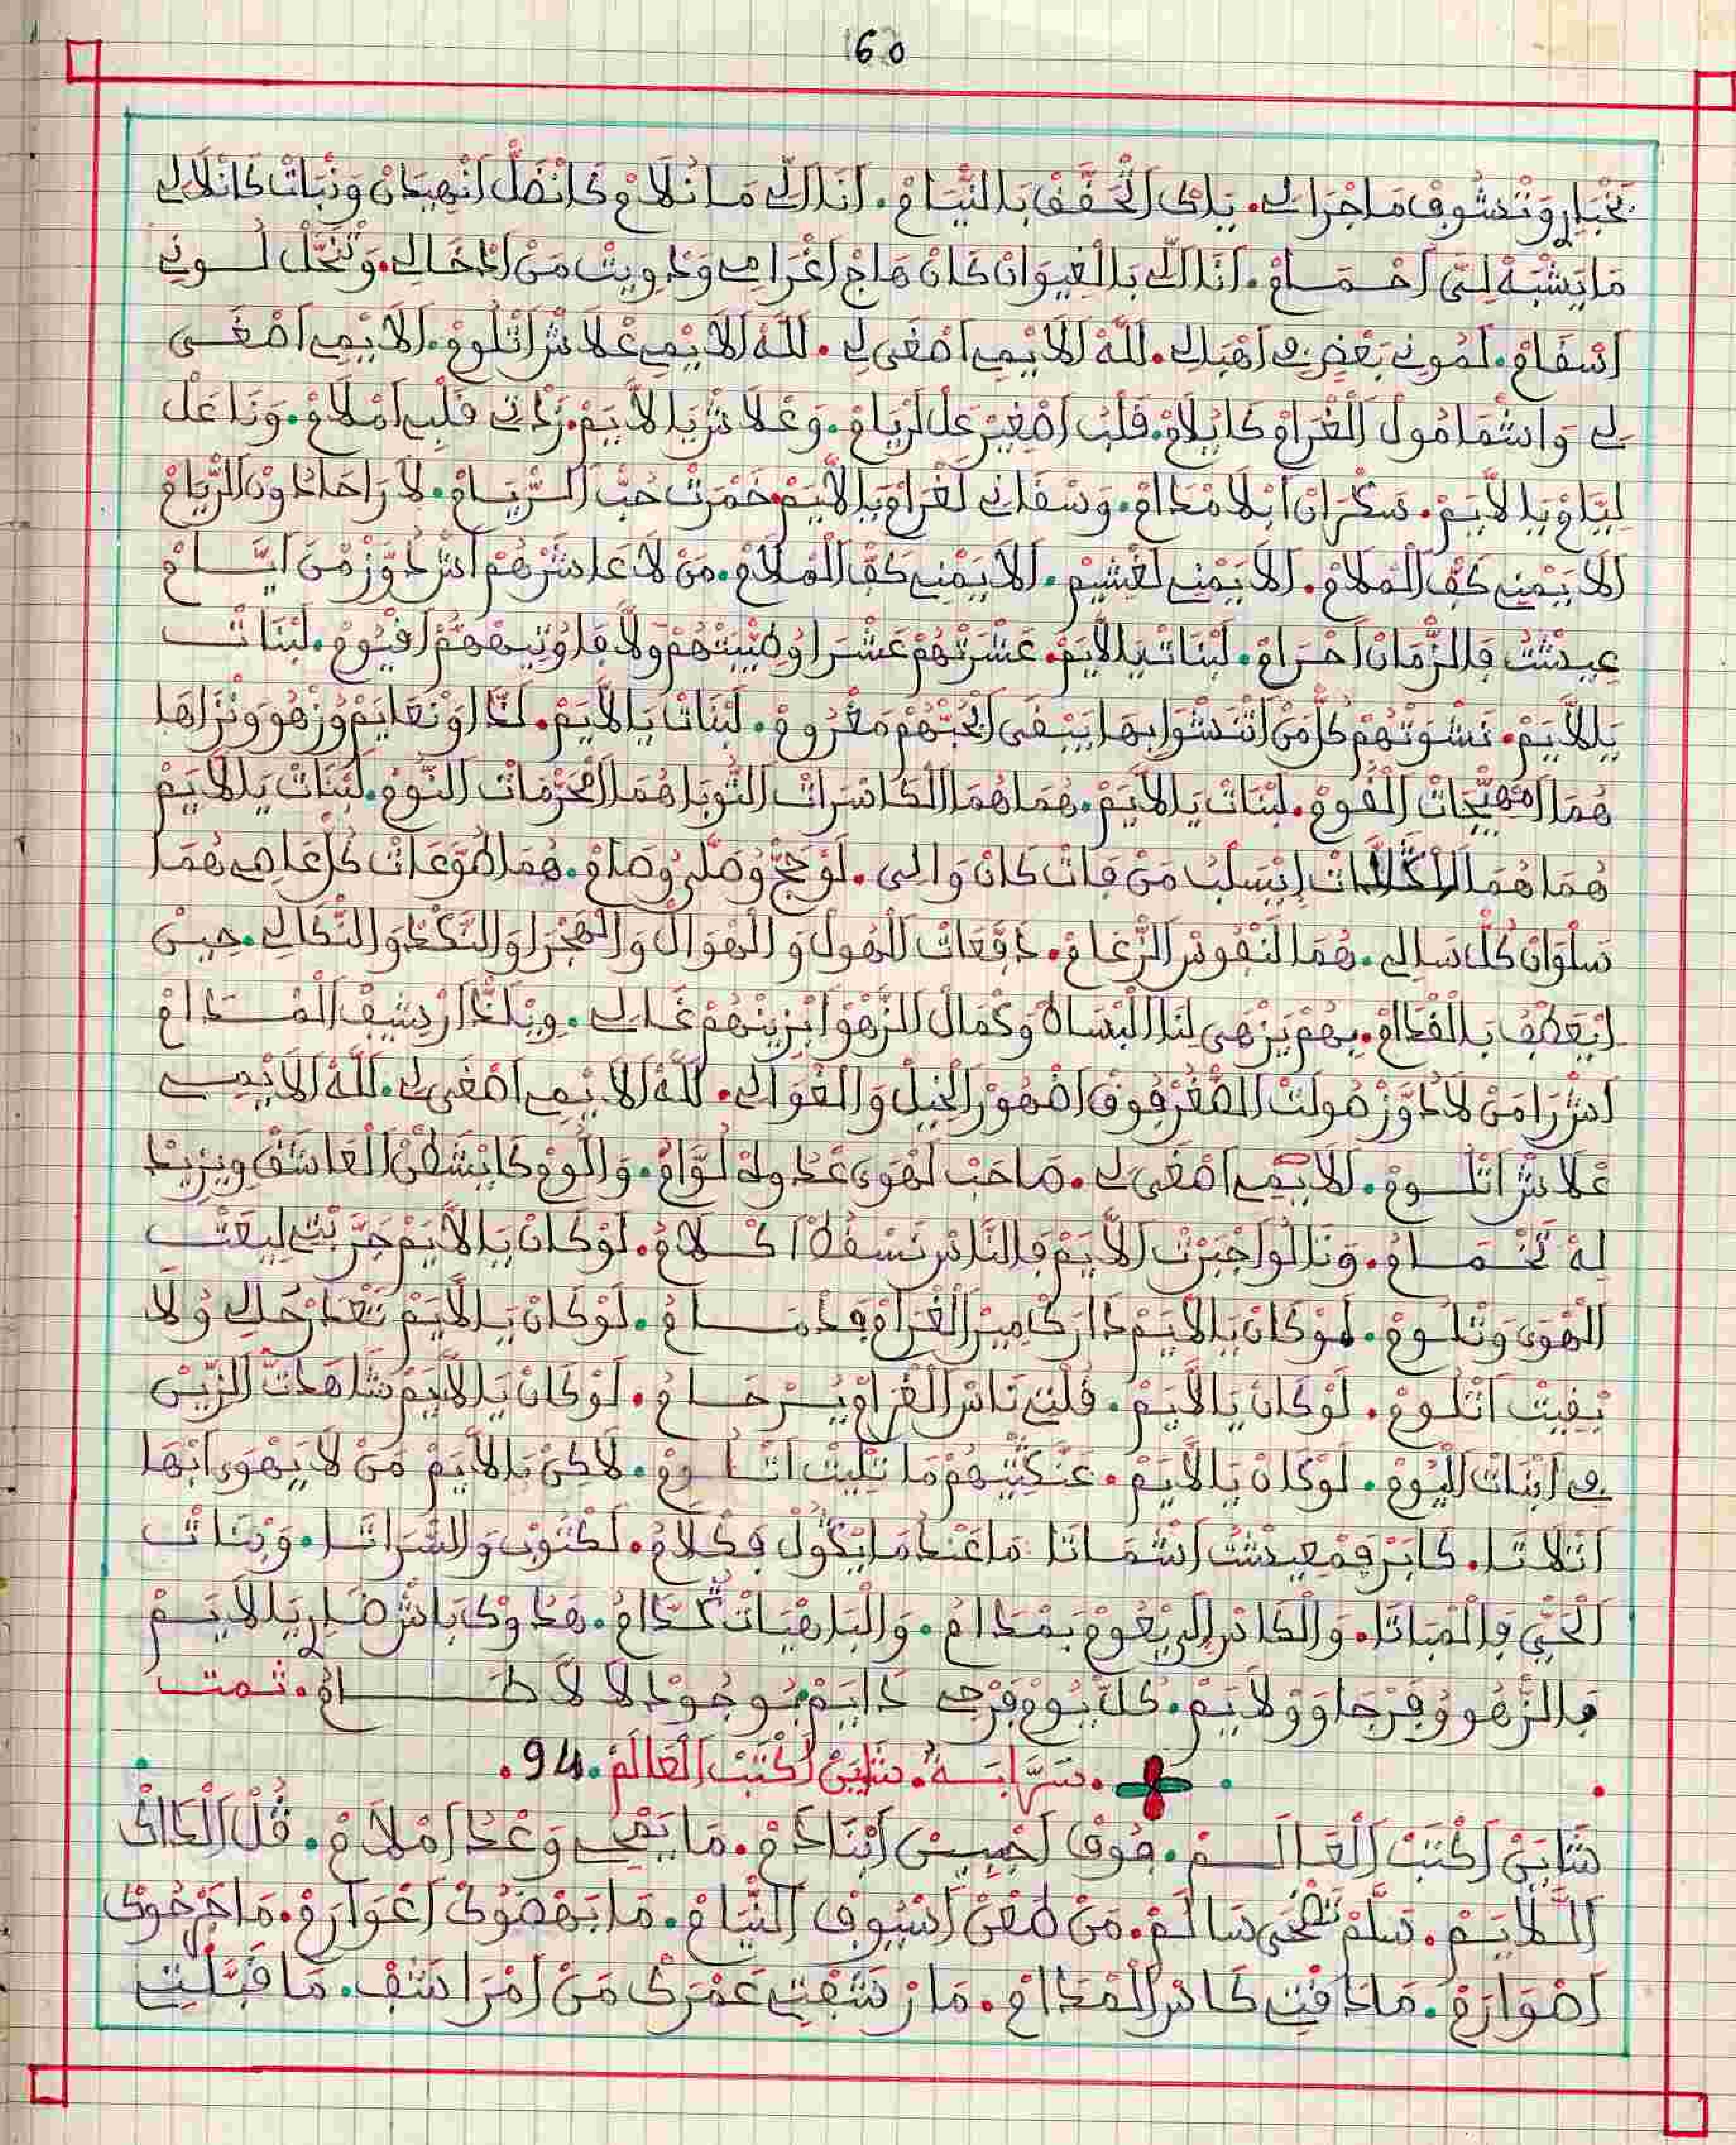 160
تَخْبَارِ وَتْشُوفْ مَاجْرَالِي. يَاكْ اتْخَفَّفْ بَالنْيَامْ. أَنَا الِّي مَا نْلَامْ كَانْضَلْ انْهِيدَانْ وَنْبَاتْ كَانْلَالِي
مَا يَشْبَهْ لَتِي احْمَامْ. أَنَا الِّي بَالْغِيوَانْ كَانْ هَاجْ اغْرَامِي وَدْوِيتْ مَنْ ادْخَالِي. وَنْحَلْ لُونِي
اسْقَامْ. لَمُونِي بَعْضِي فِي اهْبَالِي. للَّهْ الَايْمِي اصْغَى لِي. للَّهْ الَايْمِي عْلَاشْ اتْلُومْ. الَايْمِي اصْغَى
لِي وَاشْمَا مُولْ الْغْرَامْ كَايْلَامْ. قَلْبُ اصْغِيرْ عَلْ لَرْيَامْ. وَعْلَاشْ يَا لَايَمْ. زَدْتِي قَلْبِي امْلَامْ. وَنَا عَلْ
لِيَامْ يَا لَايَمْ. سَكْرَانْ ابْلَا مْدَامْ. وَسْقَانِي لَغْرَامْ يَا لَايَمْ خَمْرَتْ حُبْ الرْيَامْ. لَا رَاحَا دُونْ الرْيَامْ
الَايَمْنِي كَفْ الْمْلَامْ. الَايَمْنِي لَغْشِيمْ. الَايَمْنِي كَفْ الْمْلَامْ. مَنْ لَا عَاشَرْهُمْ اشْ دَوَّزْ مْنَ ايَّامْ
عِيشْتُ فَالزْمَانْ احْرَامْ. لَبْنَاتْ يَا لَايَمْ. عَشْرَتْهُمْ عَشْرَا وُطِيبَتْهُمْ وَلَّا قَاوْتِيهُمْ افْيُومْ. لَبْنَاتْ
يَا لَايَمْ. نَشْوَتْهُمْ كُلْ مَنْ اتْنَشْوَا بِهَا يَبْقَى ابْحُبْهُمْ مَغْرُومْ. لَبْنَاتْ يَا لَايَمْ. لَدَّا وَنْعَايَمْ وُزْهُو وَنْزَاهَا
هُمَا امْهِيجَاتْ الْقُومْ. لَبْنَاتْ يَا لَايَمْ. هُمَا هُمَا الْكَاسْرَاتْ التُّوبَا هُمَا الْمْحَرْمَاتْ النُّومْ. لَبْنَاتْ يَا لَايَمْ
هُمَا هُمَا ايْسَلْبُ مَنْ فَاتْ كَانْ وَالِي. لَوْ حَجْ وُصَلَّى وُصَامْ. هُمَا طَوْعَاتْ كُلْ عَاصِي هُمَا
سَلْوَانْ كُلْ سَالِي. هُمَا لَنْفُوسْ الزْعَامْ. دَفْعَاتْ الْهُولْ وَالْهْوَالْ وَالْهْجَرْ وَالنْكَدْ وَالنْكَالِي. حِينْ
ايْعَطْفُ بَالْقْدَامْ. بِهُمْ يَزْهَى لْنَا الْبْسَاطْ وَكْمَالْ الزْهُو ابْزِينْهُمْ غَالِي. وِيلَدْ ارْشِيفْ الْمْدَامْ
اشْ رَا مَنْ لَا دَوَّزْ صُولْتْ الصْغَرْ فُوقْ اضْهُورْ الْخِيلْ وَالْغْوَالِي. للَّهْ الَايْمِي اصْغَى لِي. للَّهْ الَايْمِي
عْلَاشْ اتْلُومْ. لَايْمِي اصْغَى لِي. صَاحَبْ لَهْوَى عْدُولُهْ لُوَّامْ. وَاللُّومْ كَايْشَطَّنْ الْعَاشَقْ وِيزِيدْ
لِهْ تَخْمَامُ. وَنَا لُو اجْبَرْتْ الَّايَمْ فَالنَّاسْ نَسْقَطْ اكْلَامُ. لَوْ كَانْ يَا لَايَمْ جَرَّبْتِي لِيعَتْ
الْهْوَى وَتْلُومْ. لَوْ كَانْ يَا لَايَمْ دَارَكْ مِيرْ الْغْرَامْ فَدْمَامُ. لَوْ كَانْ يَا لَايَمْ تَعْدَرْ حَالِي وُلَا
بْقِيتْ اتْلُومْ. لَوْ كَانْ يَا لَايَمْ. قُلْتِي نَاسْ الْغْرَامْ يُرْحَامُ. لَوْ كَانْ يَا لَايَمْ شَاهَدْتْ الزِّينْ
فِي ابْنَاتْ الْيُومْ. لَوْ كَانْ يَا لَايَمْ. عَنْكِيتِيهُمْ مَا تْلِيتْ اتْلُومْ. لَاكِنْ يَا لَايَمْ مَنْ لَا يَهْوَى ابْهَا
اتْلَاتَا. كَايَرْ فَمْعِيشْتُ اشْمَاتَا مَا عَنْدُ مَا يْكُولْ فَكْلَامُ. لَكْتُوبْ وَالسْرَاتَا. وَبْنَاتْ
الْحَيْ فَالْمْبَاتَا. وَالْكَاسْ الِّي يْعُومْ بَمْدَامُ. وَالْبَاهْيَاتْ كُدَّامُ. هَدُوكْ بَاشْ ضَارِي يَا لَايَمْ
فَالزْهُو وُفَرْجَا وَوْلَايَمْ. كُلْ يُومْ فَرْجِي دَايَمْ بُوجُودْ لَالَّا طَامُ. تمت
. سَرَّابَةُ. شَايَنْ اكْتَبْ الْعَالَمْ. 94.
شَايَنْ اكْتَبْ الْعَالَمْ. فُوقْ اجْبِينْ ابْنَادَمْ. مَا يَمْحِي وَعْدُ امْلَامْ. قُلْ الْدَاكْ
الْلَايَمْ. سَلَّمْ تَضْحَى سَالَمْ. مَنْ طَعْنْ اسْيُوفْ النْيَامْ. مَا يَهْضُوكْ اعْوَارَمْ. مَا جَرْحُوكْ
اصْوَارَمْ. مَا دَقْتِي كَاسْ الْمْدَامْ. مَا رْشَفْتِي عَمْرَكْ مَنْ امْرَاشَفْ. مَا قَبَّلْتِ